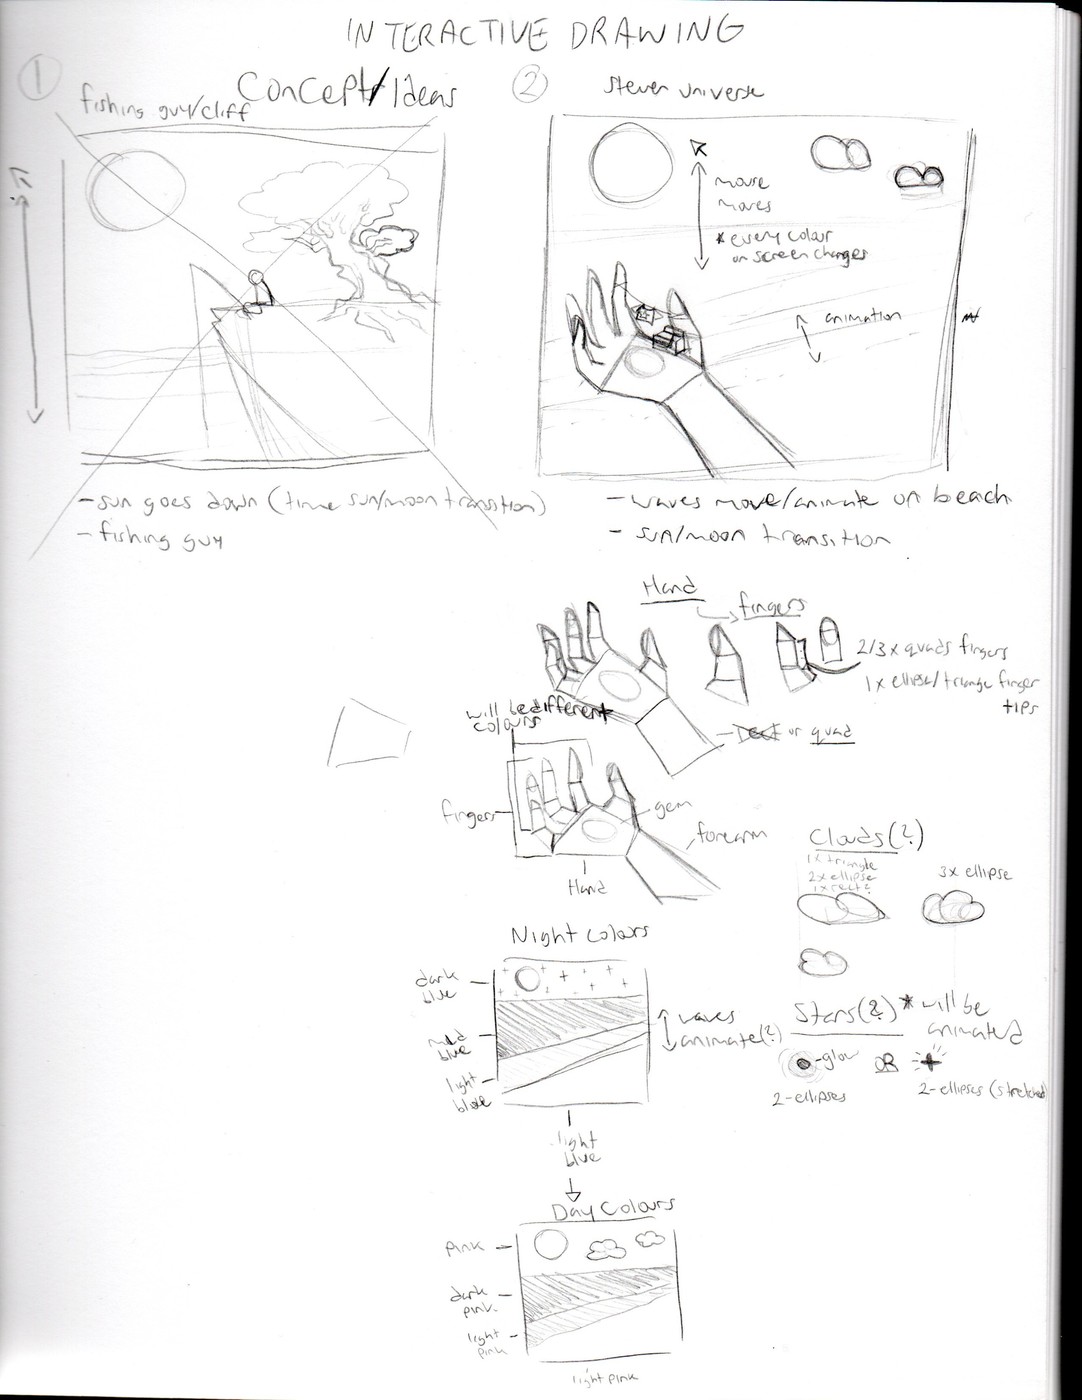 INTERACTIVE DRAWING
Concept/Ideas
1
fishing guy/cliff
- sun goes down (time sun/moon transition)
- fishing guy
2
Steven universe
mouse
moves
* every colour
on screen changes
animation
- waves move/animate on beach
- sun/moon transition
Hand
fingers
2/3x quads fingers
1x ellipse/triangle finger
tips
or quad
will be different
colours
fingers
gem
forearm
Hand
Clouds(?)
1x triangle
2x ellipse
1x rect?
3x ellipse
Night colours
dark
blue
mid
blue
light
blue
waves
animate(?)
Stars(?) * will be
animated
-glow
OR
2-ellipses
2-ellipses (stretched)
light
blue
Day Colours
pink
dark
pink
light
pink
light pink